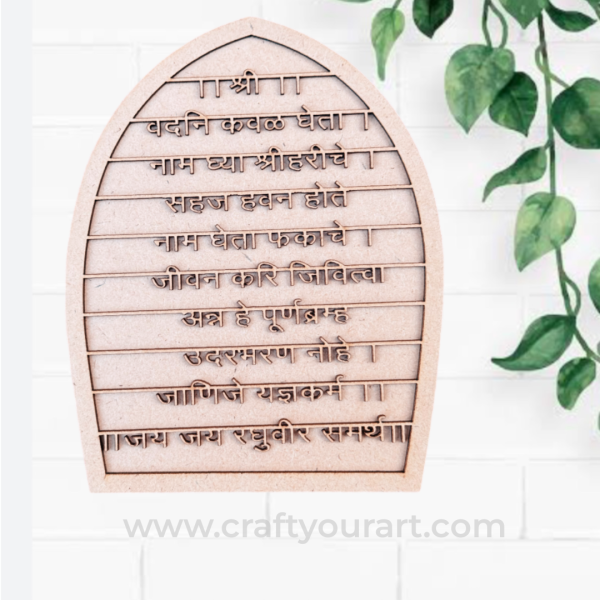 ।। श्री ।।
वदनि कवळ घेता ।
नाम घ्या श्रीहरीचे ।
सहज हवन होते
नाम घेता फकाचे ।
जीवन करि जिवित्वा
अन्न हे पूर्णब्रम्ह
उदरमरण नोहे ।
जाणिजे यज्ञकर्म ।।
॥जय जय रघुवीर समर्थ॥
www.craftyourart.com